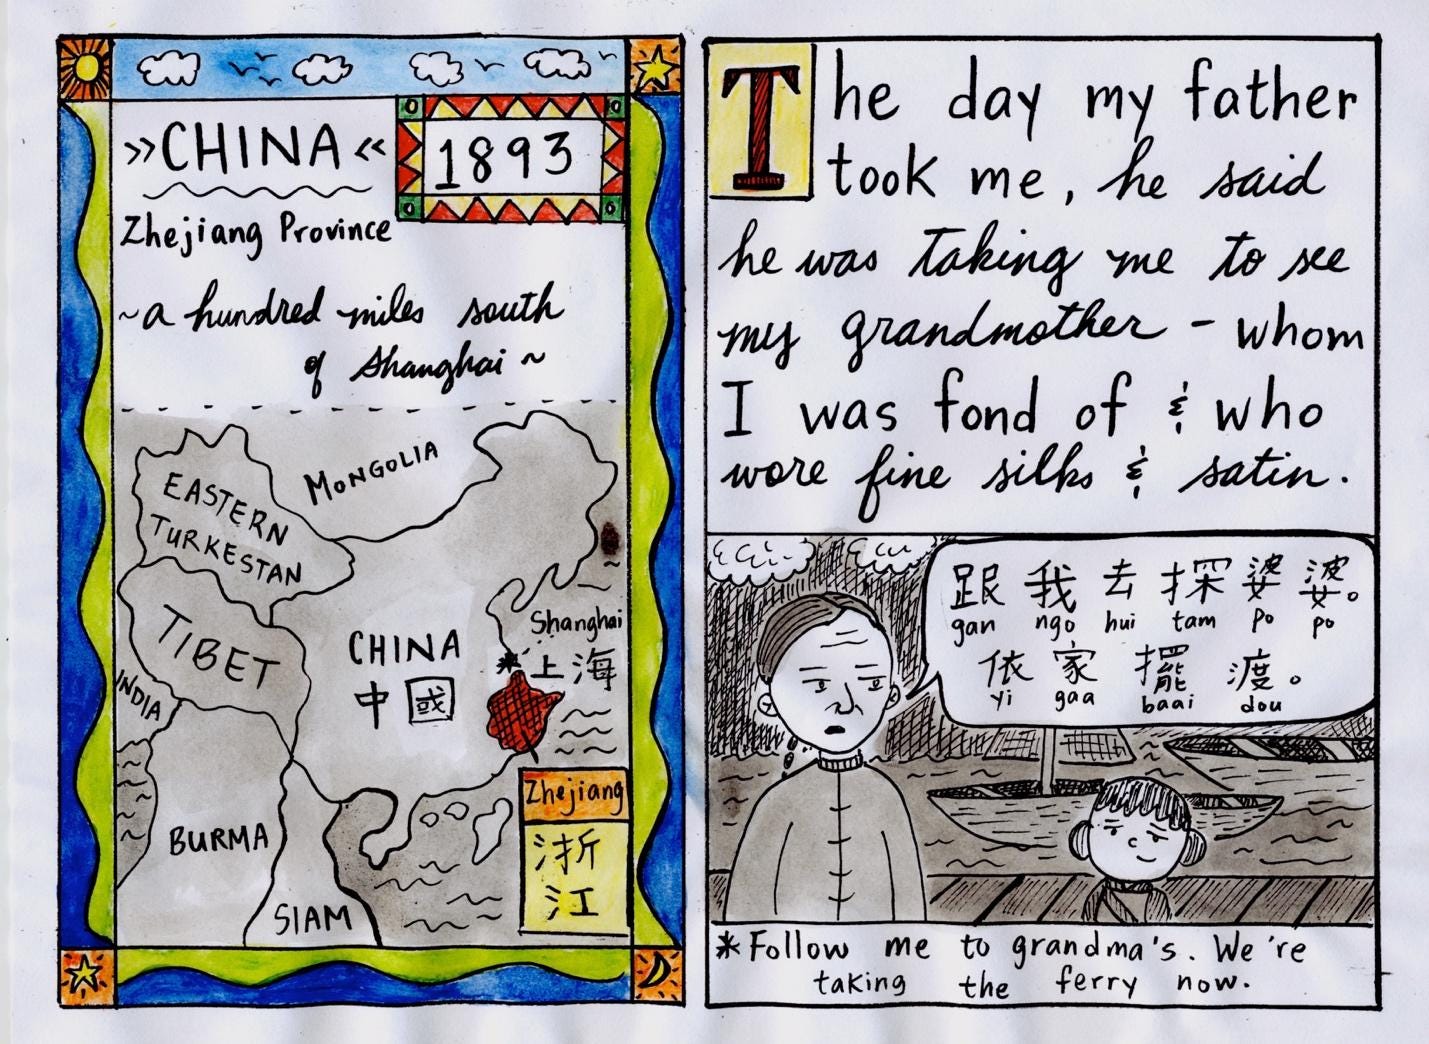 »CHINA«
1893
Zhejiang Province
~a hundred miles south
of Shanghai~
MONGOLIA
EASTERN
TURKESTAN
TIBET
INDIA
CHINA
中國
Shanghai
*上海
BURMA
SIAM
Zhejiang
浙
江
The day my father
took me, he said
he was taking me to see
my grandmother - whom
I was fond of & who
wore fine silks & satin.
跟我去探婆婆。
gan ngo hui tam po po
依家擺渡。
yi gaa baai dou
*Follow me to grandma's. We're
taking the ferry now.